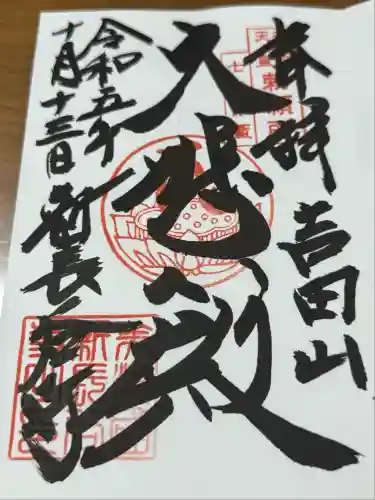 奉拝 吉田山
大悲殿
令和五年
十月十三日
新長谷寺